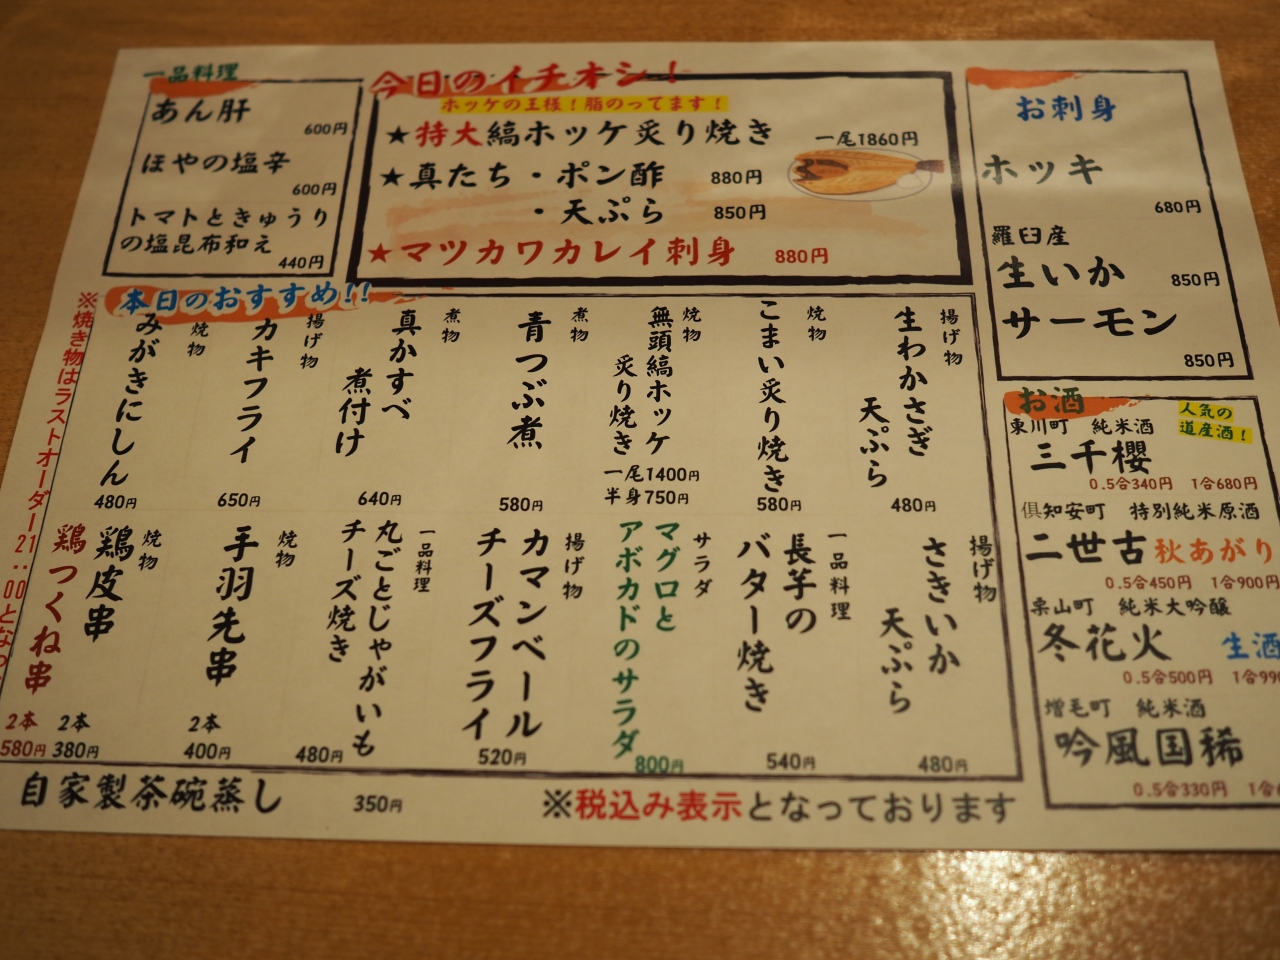 一品料理
あん肝
600円
ほやの塩辛
600円
トマトときゅうり
の塩昆布和え
440円
今日のイチオシ！
ホッケの王様！脂のってます！
★特大縞ホッケ炙り焼き 一尾1860円
★真たち・ポン酢 880円
・天ぷら 850円
★マツカワカレイ刺身 880円
お刺身
ホッキ
680円
羅臼産
生いか 850円
サーモン
850円
本日のおすすめ!!
揚げ物
生わかさぎ
天ぷら
480円
焼物
こまい炙り焼き
580円
焼物
無頭縞ホッケ
炙り焼き
一尾1400円
半身750円
煮物
青つぶ煮
580円
煮物
真かすべ
煮付け
640円
揚げ物
カキフライ
650円
焼物
みがきにしん
480円
※焼き物はラストオーダー21:00となっ
揚げ物
さきいか
天ぷら
480円
一品料理
長芋の
バター焼き
540円
サラダ
マグロと
アボカドのサラダ
800円
揚げ物
カマンベール
チーズフライ
520円
一品料理
丸ごとじゃがいも
チーズ焼き
480円
焼物
手羽先串
2本
400円
焼物
鶏皮串
2本
380円
鶏つくね串
2本
580円
お酒
人気の
道産酒！
東川町 純米酒
三千櫻
0.5合340円 1合680円
倶知安町 特別純米原酒
二世古 秋あがり
0.5合450円 1合900円
栗山町 純米大吟醸
冬花火 生酒
0.5合500円 1合990
増毛町 純米酒
吟風国稀
0.5合330円 1合6
自家製茶碗蒸し 350円
※税込み表示となっております